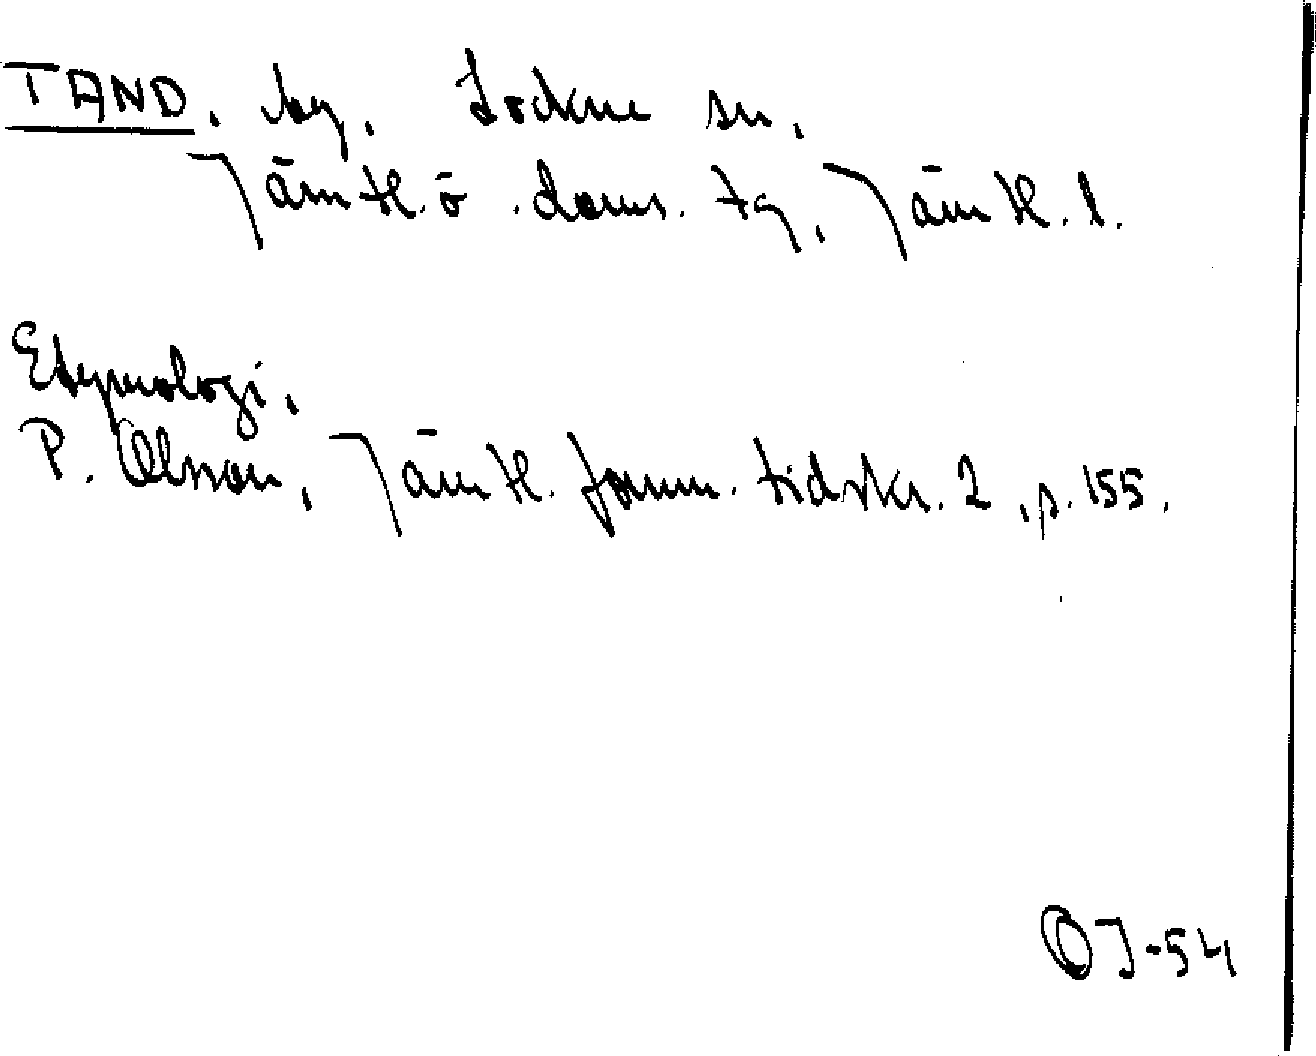 TAND, by, Lockne sn,
Jämtl. ö. doms. tg, Jämtl. l.
Etymologi,
P. Olsson, Jämtl. fornm. tidskr. 2, s. 155.
OJ-54